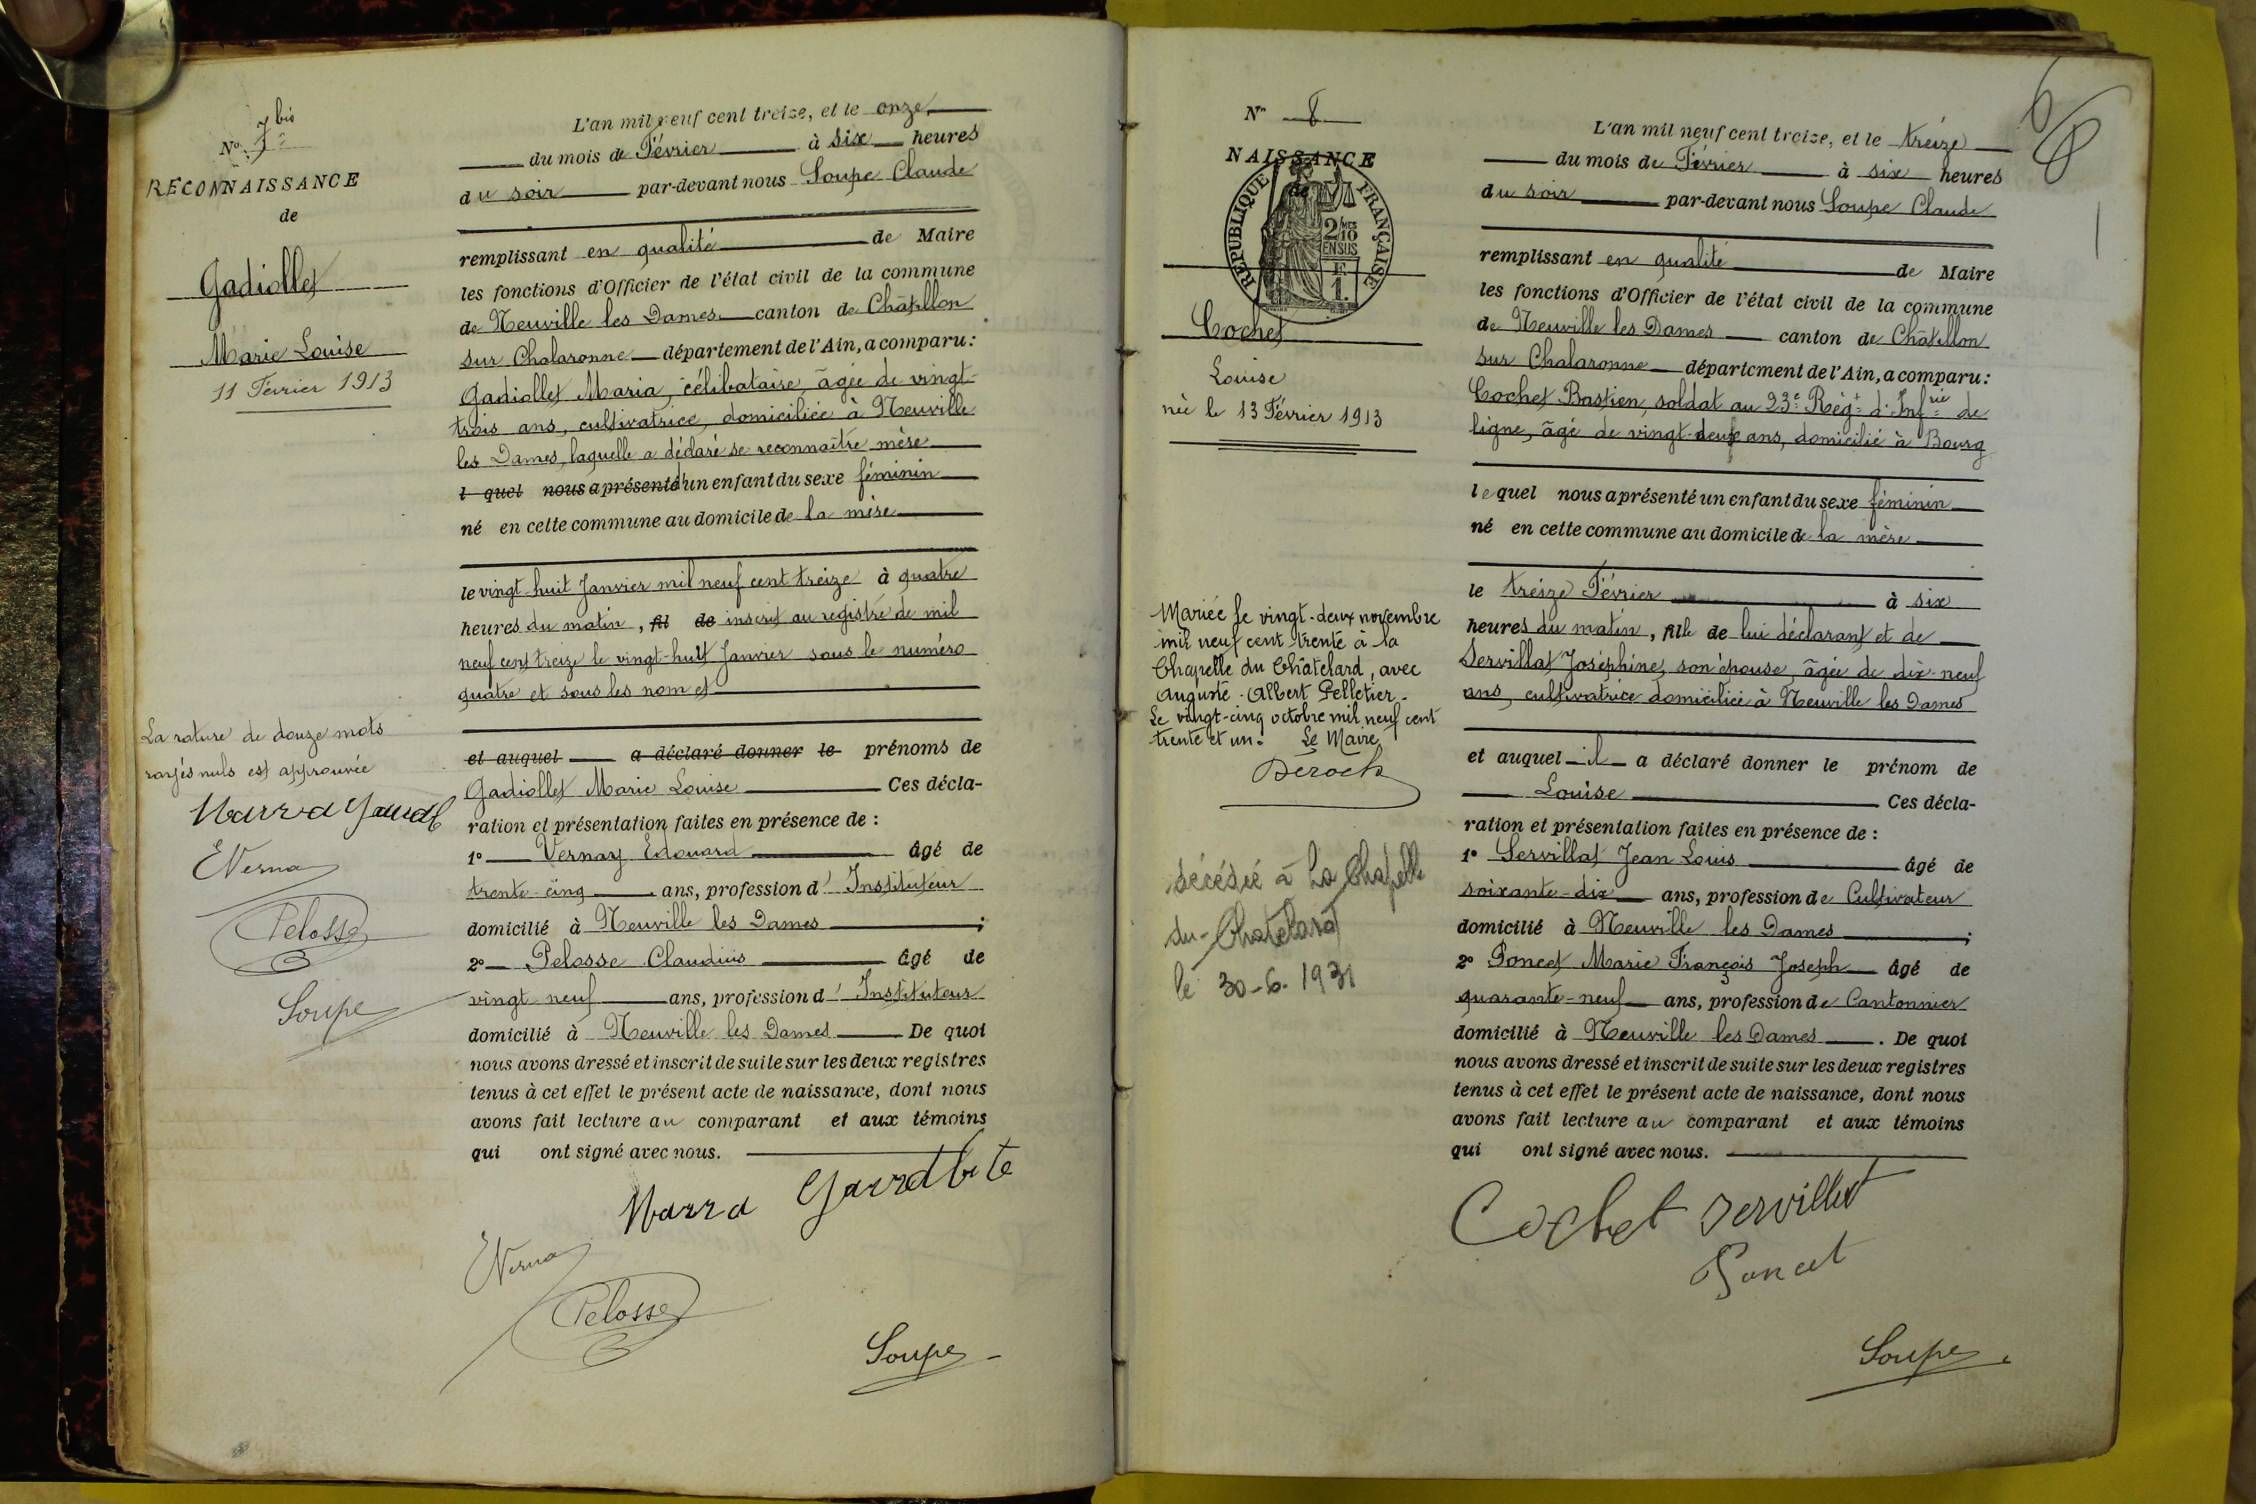 No. 7 bis
RECONNAISSANCE
de
Gadiollet
Marie Louise
11 Février 1913
La rature de douze mots
rayés nuls est approuvée
E Verna
Pelosse
Soupe
L'an mil neuf cent treize, et le onze
du mois de Février à six heures
du soir par-devant nous Soupe Claude
remplissant en qualité de Maire
les fonctions d'Officier de l'état civil de la commune
de Neuville les Dames canton de Châtillon
sur Chalaronne département de l'Ain, a comparu :
Gadiollet Maria, célibataire, âgée de vingt-
trois ans, cultivatrice, domiciliée à Neuville
les Dames, laquelle a déclaré se reconnaître mère
l quel nous a présenté d'un enfant du sexe féminin
né en cette commune au domicile de la mère
le vingt-huit Janvier mil neuf cent treize à quatre
heures du matin, fil de inscrit au registre de mil
neuf cent treize le vingt-huit Janvier sous le numéro
quatre et sous les nom et
et auquel a déclaré donner le prénoms de
Gadiollet Marie Louise Ces décla-
ration et présentation faites en présence de :
1º Vernay Edouard âgé de
trente-cinq ans, profession d'Instituteur
domicilié à Neuville les Dames ;
2º Pelosse Claudius âgé de
vingt neuf ans, profession d'Instituteur
domicilié à Neuville les Dames De quoi
nous avons dressé et inscrit de suite sur les deux registres
tenus à cet effet le présent acte de naissance, dont nous
avons fait lecture au comparant et aux témoins
qui ont signé avec nous.
E Verna
Pelosse
Soupe
Nº 8
NAISSANCE
de
REPUBLIQUE FRANÇAISE
2/10 MES
EN SUS
1 F.
Cochet
Louise
née le 13 Février 1913
Mariée le vingt-deux novembre
mil neuf cent trente à la
Chapelle du Châtelard, avec
Auguste-Albert Pelletier.
Le vingt-cinq octobre mil neuf cent
trente et un. Le Maire
décédée à La Chapelle
du-Chatelard
le 30-6-1931
L'an mil neuf cent treize, et le treize
du mois de Février à six heures
du soir par-devant nous Soupe Claude
remplissant en qualité de Maire
les fonctions d'Officier de l'état civil de la commune
de Neuville les Dames canton de Châtillon
sur Chalaronne département de l'Ain, a comparu :
Cochet Bastien, soldat au 23e Régt d'Infrie de
ligne, âgé de vingt-deux ans, domicilié à Bourg
lequel nous a présenté un enfant du sexe féminin
né en cette commune au domicile de la mère
le treize Février à six
heures du matin, fille de lui déclarant et de
Servillat Joséphine, son épouse, âgée de dix-neuf
ans, cultivatrice domiciliée à Neuville les Dames
et auquel il a déclaré donner le prénom de
Louise Ces décla-
ration et présentation faites en présence de :
1º Servillat Jean Louis âgé de
soixante-dix ans, profession de Cultivateur
domicilié à Neuville les Dames ;
2º Poncet Marie François Joseph âgé de
quarante-neuf ans, profession de Cantonnier
domicilié à Neuville les Dames. De quoi
nous avons dressé et inscrit de suite sur les deux registres
tenus à cet effet le présent acte de naissance, dont nous
avons fait lecture au comparant et aux témoins
qui ont signé avec nous.
Cochet Servillat
Poncet
Soupe